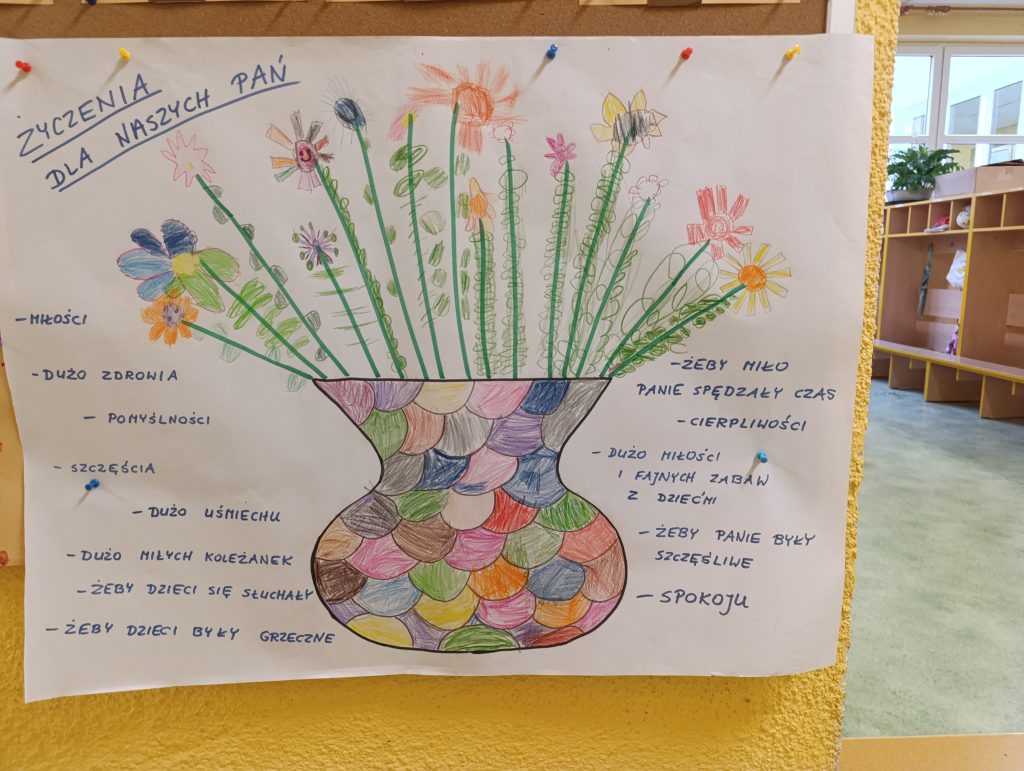 ŻYCZENIA
DLA NASZYCH PAŃ
- MIŁOŚCI
- DUŻO ZDROWIA
- POMYŚLNOŚCI
- SZCZĘŚCIA
- DUŻO UŚMIECHU
- DUŻO MIŁYCH KOLEŻANEK
- ŻEBY DZIECI SIĘ SŁUCHAŁY
- ŻEBY DZIECI BYŁY GRZECZNE
- ŻEBY MIŁO
PANIE SPĘDZAŁY CZAS
- CIERPLIWOŚCI
- DUŻO MIŁOŚCI
I FAJNYCH ZABAW
Z DZIEĆMI
- ŻEBY PANIE BYŁY
SZCZĘŚLIWE
- SPOKOJU